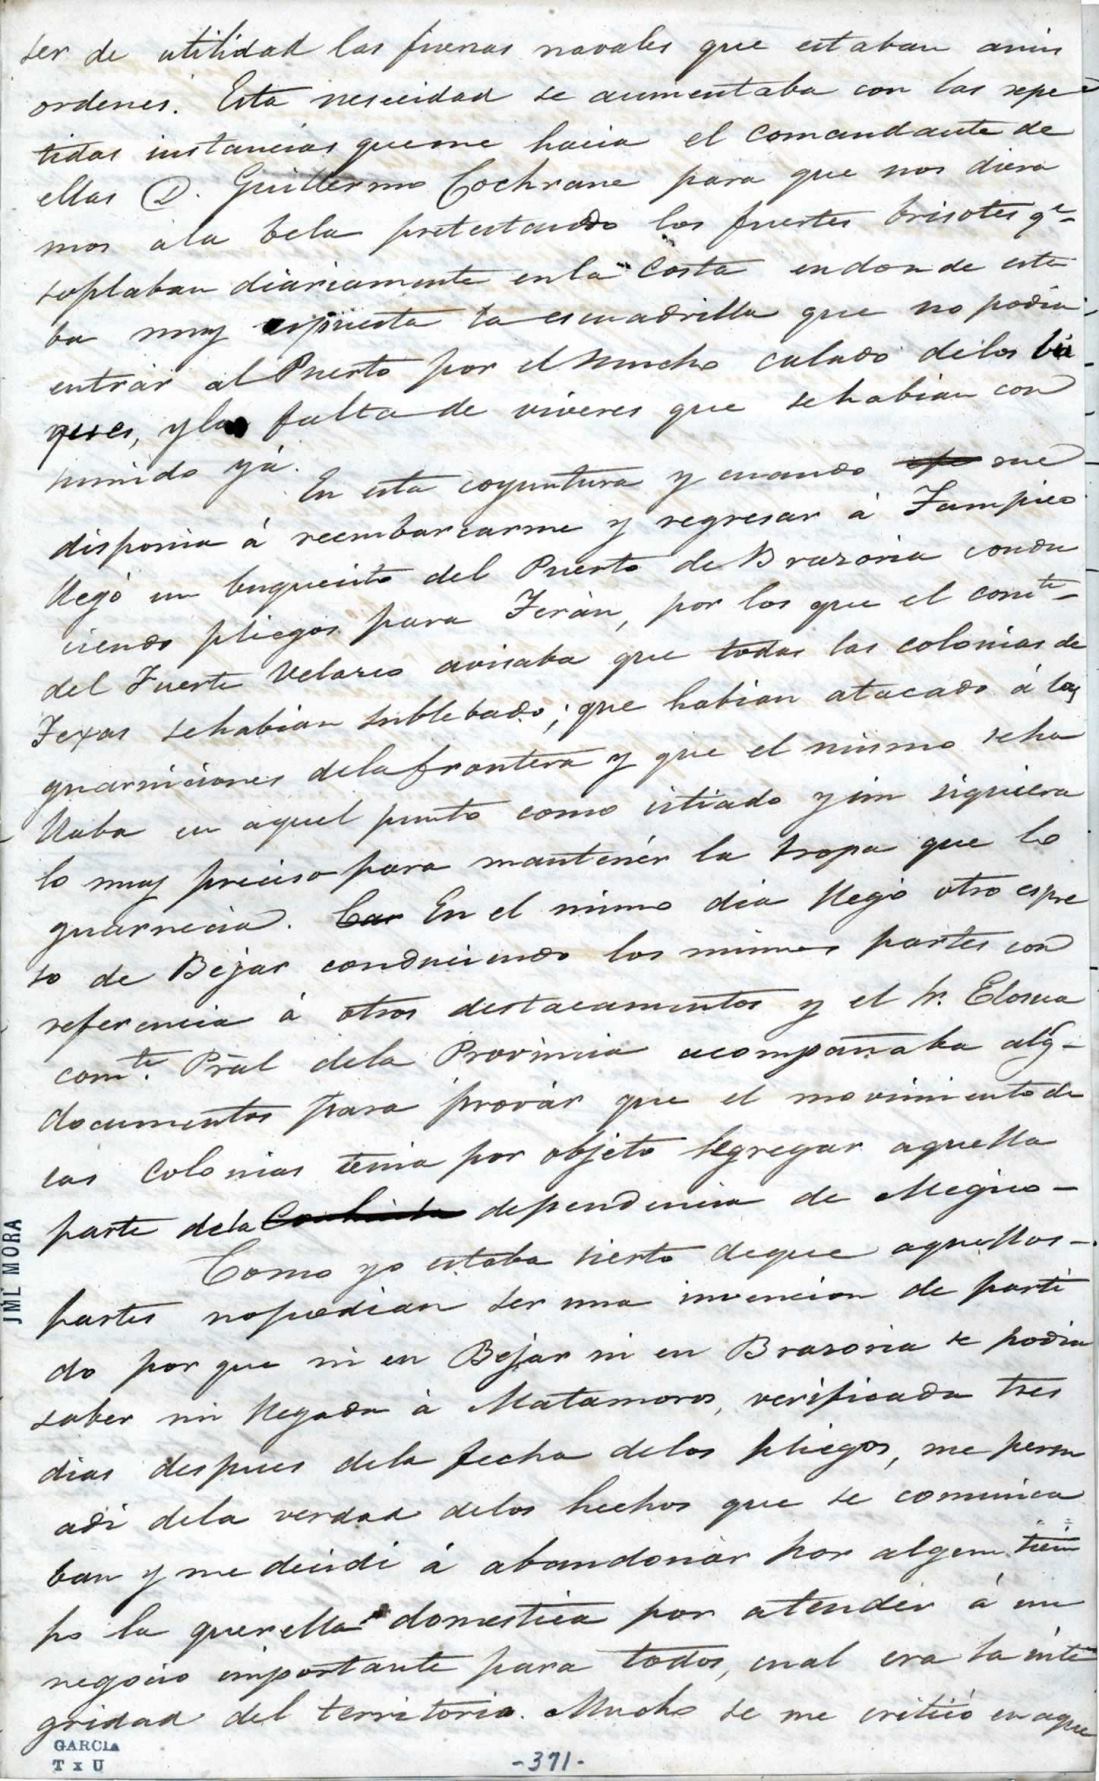 ser de utilidad las fuerzas navales que estaban amis
ordenes. Esta nesecidad se aumentaba con las repe
tidas instancias queme hacia el comandante de
ellas D. Guillermo Cochrane para que nos diera
mos ala bela pretestando los fuertes brisotes qe
soplaban diariamente enla Costa endonde esta
ba muy espuesta la escuadrilla que no podia
entrar al Puerto por el mucho calado delos bu
ques, yla falta de viveres que sehabian con
sumido yá.
En esta coyuntura y cuando me
disponia á reembarcarme y regresar á Tampico
llegó un buquecito del Puerto de Brazoria condu
ciendo pliegos para Terán, por los que el comte
del Fuerte Velazco avisaba que todas las colonias de
Texas sehabian sublebado; que habian atacado á las
guarniciones dela frontera y que el mismo seha
llaba en aquel punto como sitiado y sin siquiera
lo muy preciso para mantenér la tropa que lo
guarnecia. Car En el mismo dia llegó otro espre
so de Bejar conduciendo los mismos partes con
referencia á otros destacamentos y el Sr. Elosua
comte. Pral dela Provincia acompañaba alg
documentos para provár que el movimiento de
las colonias tenia por objeto segregar aquella
parte dela dependencia de Megico-
Como yo estaba sierto deque aquellos-
partes nopodian ser una invencion de parti
do por que ni en Bejar ni en Brazoria se podia
saber mi llegada á Matamoros, verificada tres
dias despues dela fecha delos pliegos, me persu
adi dela verdad delos hechos que se comunica
ban y me decidi á abandonár por algun tiem
po la querella domestica por atendér á un
negocio importante para todos, cual era la inte
gridad del territorio. Mucho se me criticó en aque
JML MORA
GARCIA
T x U
-371-